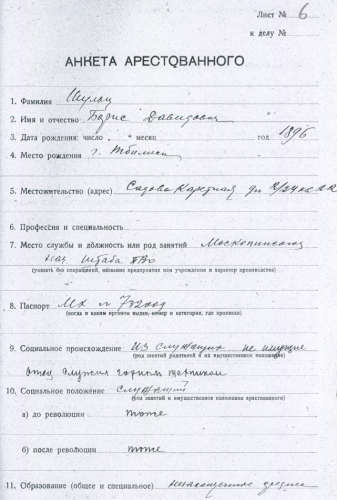 Лист № 6
к делу №
АНКЕТА АРЕСТОВАННОГО
1. Фамилия Шульц
2. Имя и отчество Борис Давидович
3. Дата рождения: число „ “ месяц год 1896
4. Место рождения г. Тбилиси
5. Местожительство (адрес) Садово Каретная
6. Профессия и специальность
7. Место службы и должность или род занятий
нач штаба ПВО
(указать без сокращений, название предприятия или учреждения и характер производства)
8. Паспорт МК №
(когда и каким органом выдан, номер и категория, где прописан)
9. Социальное происхождение из служащих не имущие
(род занятий родителей и их имущественное положение)
отец служил горным
10. Социальное положение служащий
(род занятий и имущественное положение арестованного)
а) до революции тоже
б) после революции тоже
11. Образование (общее и специальное) незаконченное среднее